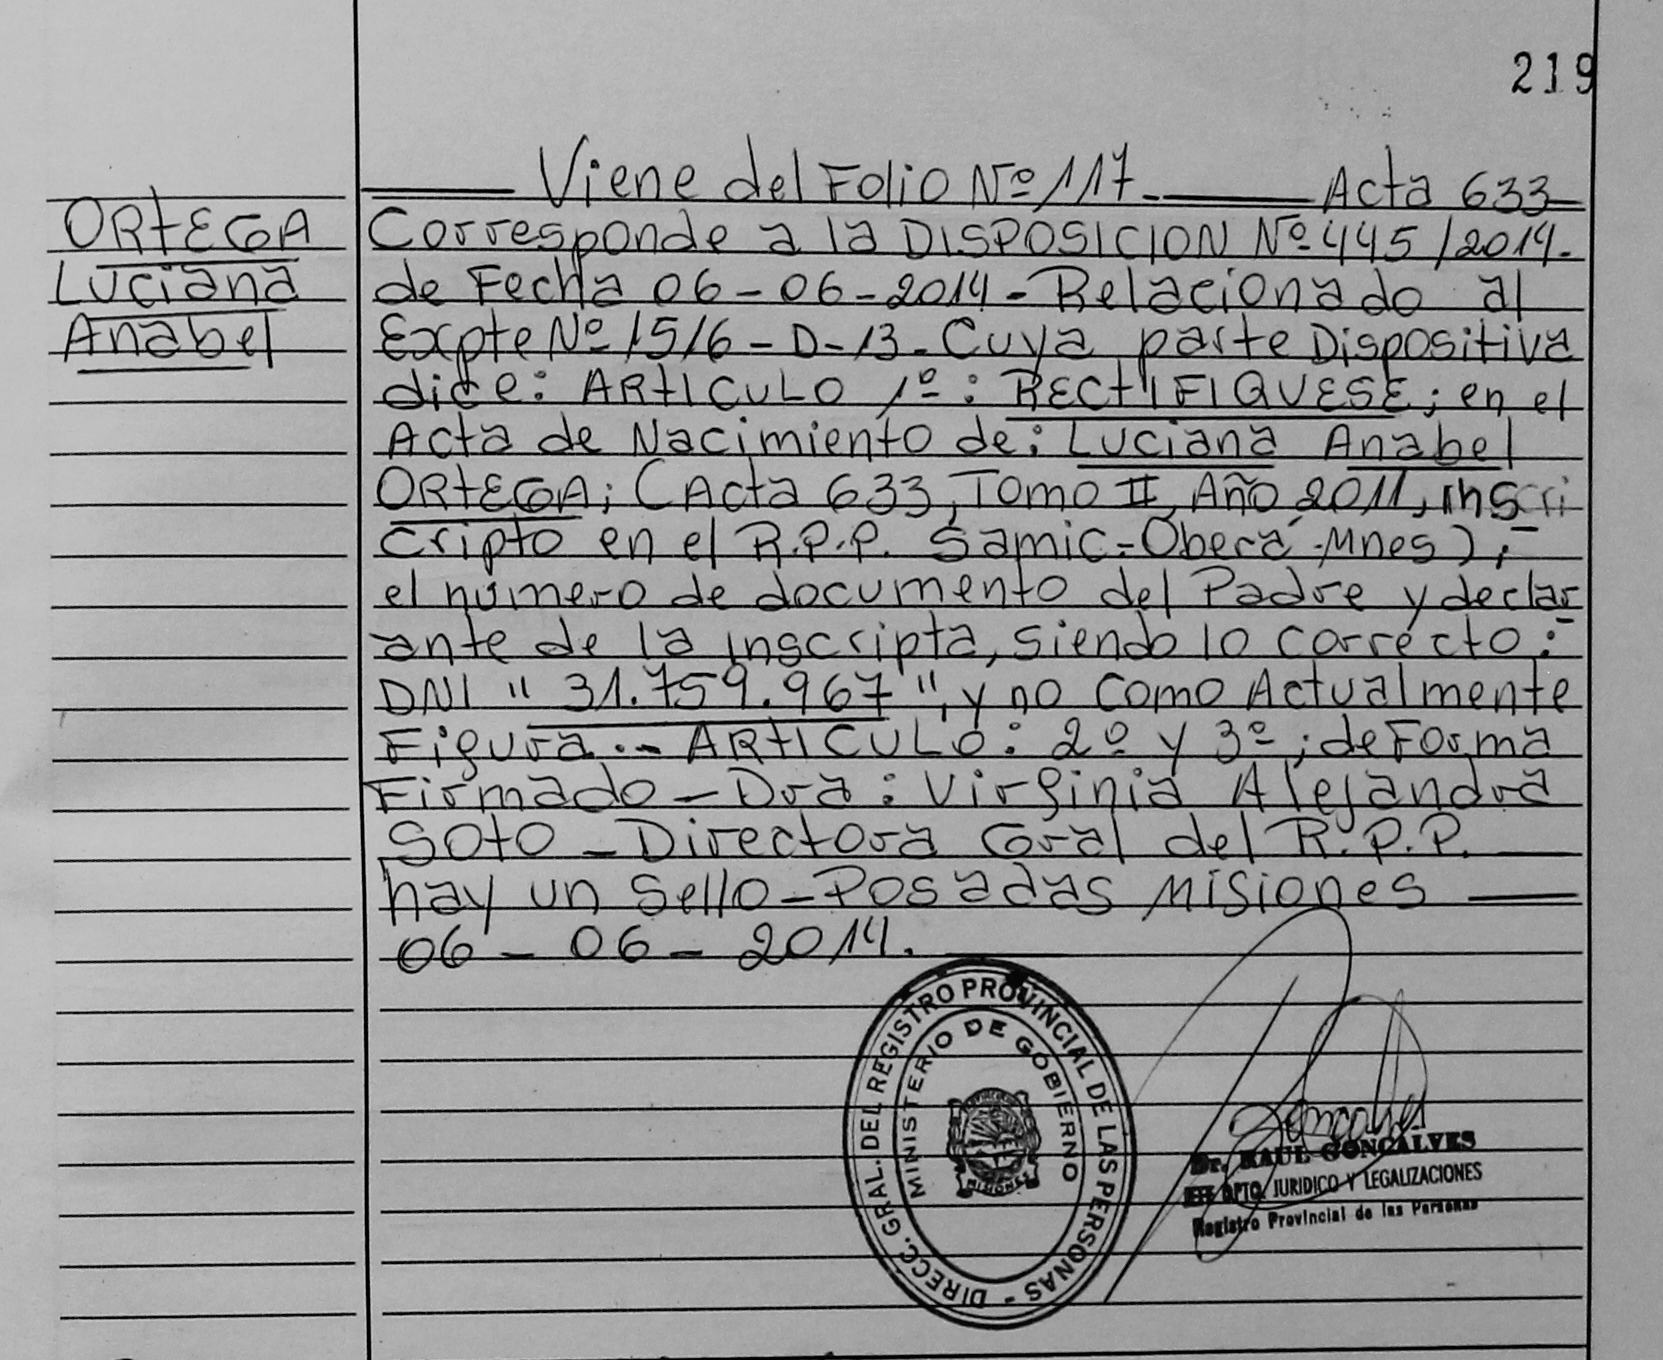 219
Viene del Folio Nº 117. Acta 633
ORTEGA
Luciana
Anabel
Corresponde a la DISPOSICION Nº 445/2014.
de Fecha 06-06-2014- Relacionado al
Expte Nº 1516-D-13. Cuya parte Dispositiva
dice: ARTICULO 1º: RECTIFIQUESE; en el
Acta de Nacimiento de: Luciana Anabel
ORTEGA; (Acta 633, Tomo II, Año 2011, inscri
cripto en el R.P.P. Samic-Oberá-Mnes),-
el número de documento del Padre y declar
ante de la inscripta, siendo lo correcto:-
DNI " 31.759.967 ", y no como Actualmente
Figura.-- ARTICULO: 2º y 3º; de Forma
Firmado - Dra: Virginia Alejandra
SOTO - Directora Gral del R.P.P.
hay un Sello - Posadas Misiones
06 - 06 - 2014.
DIRECC. GRAL. DEL REGISTRO PROVINCIAL DE LAS PERSONAS -
MINISTERIO DE GOBIERNO
MISIONES
Dr. RAUL GONCALVES
DPTO. JURIDICO Y LEGALIZACIONES
Registro Provincial de las Personas